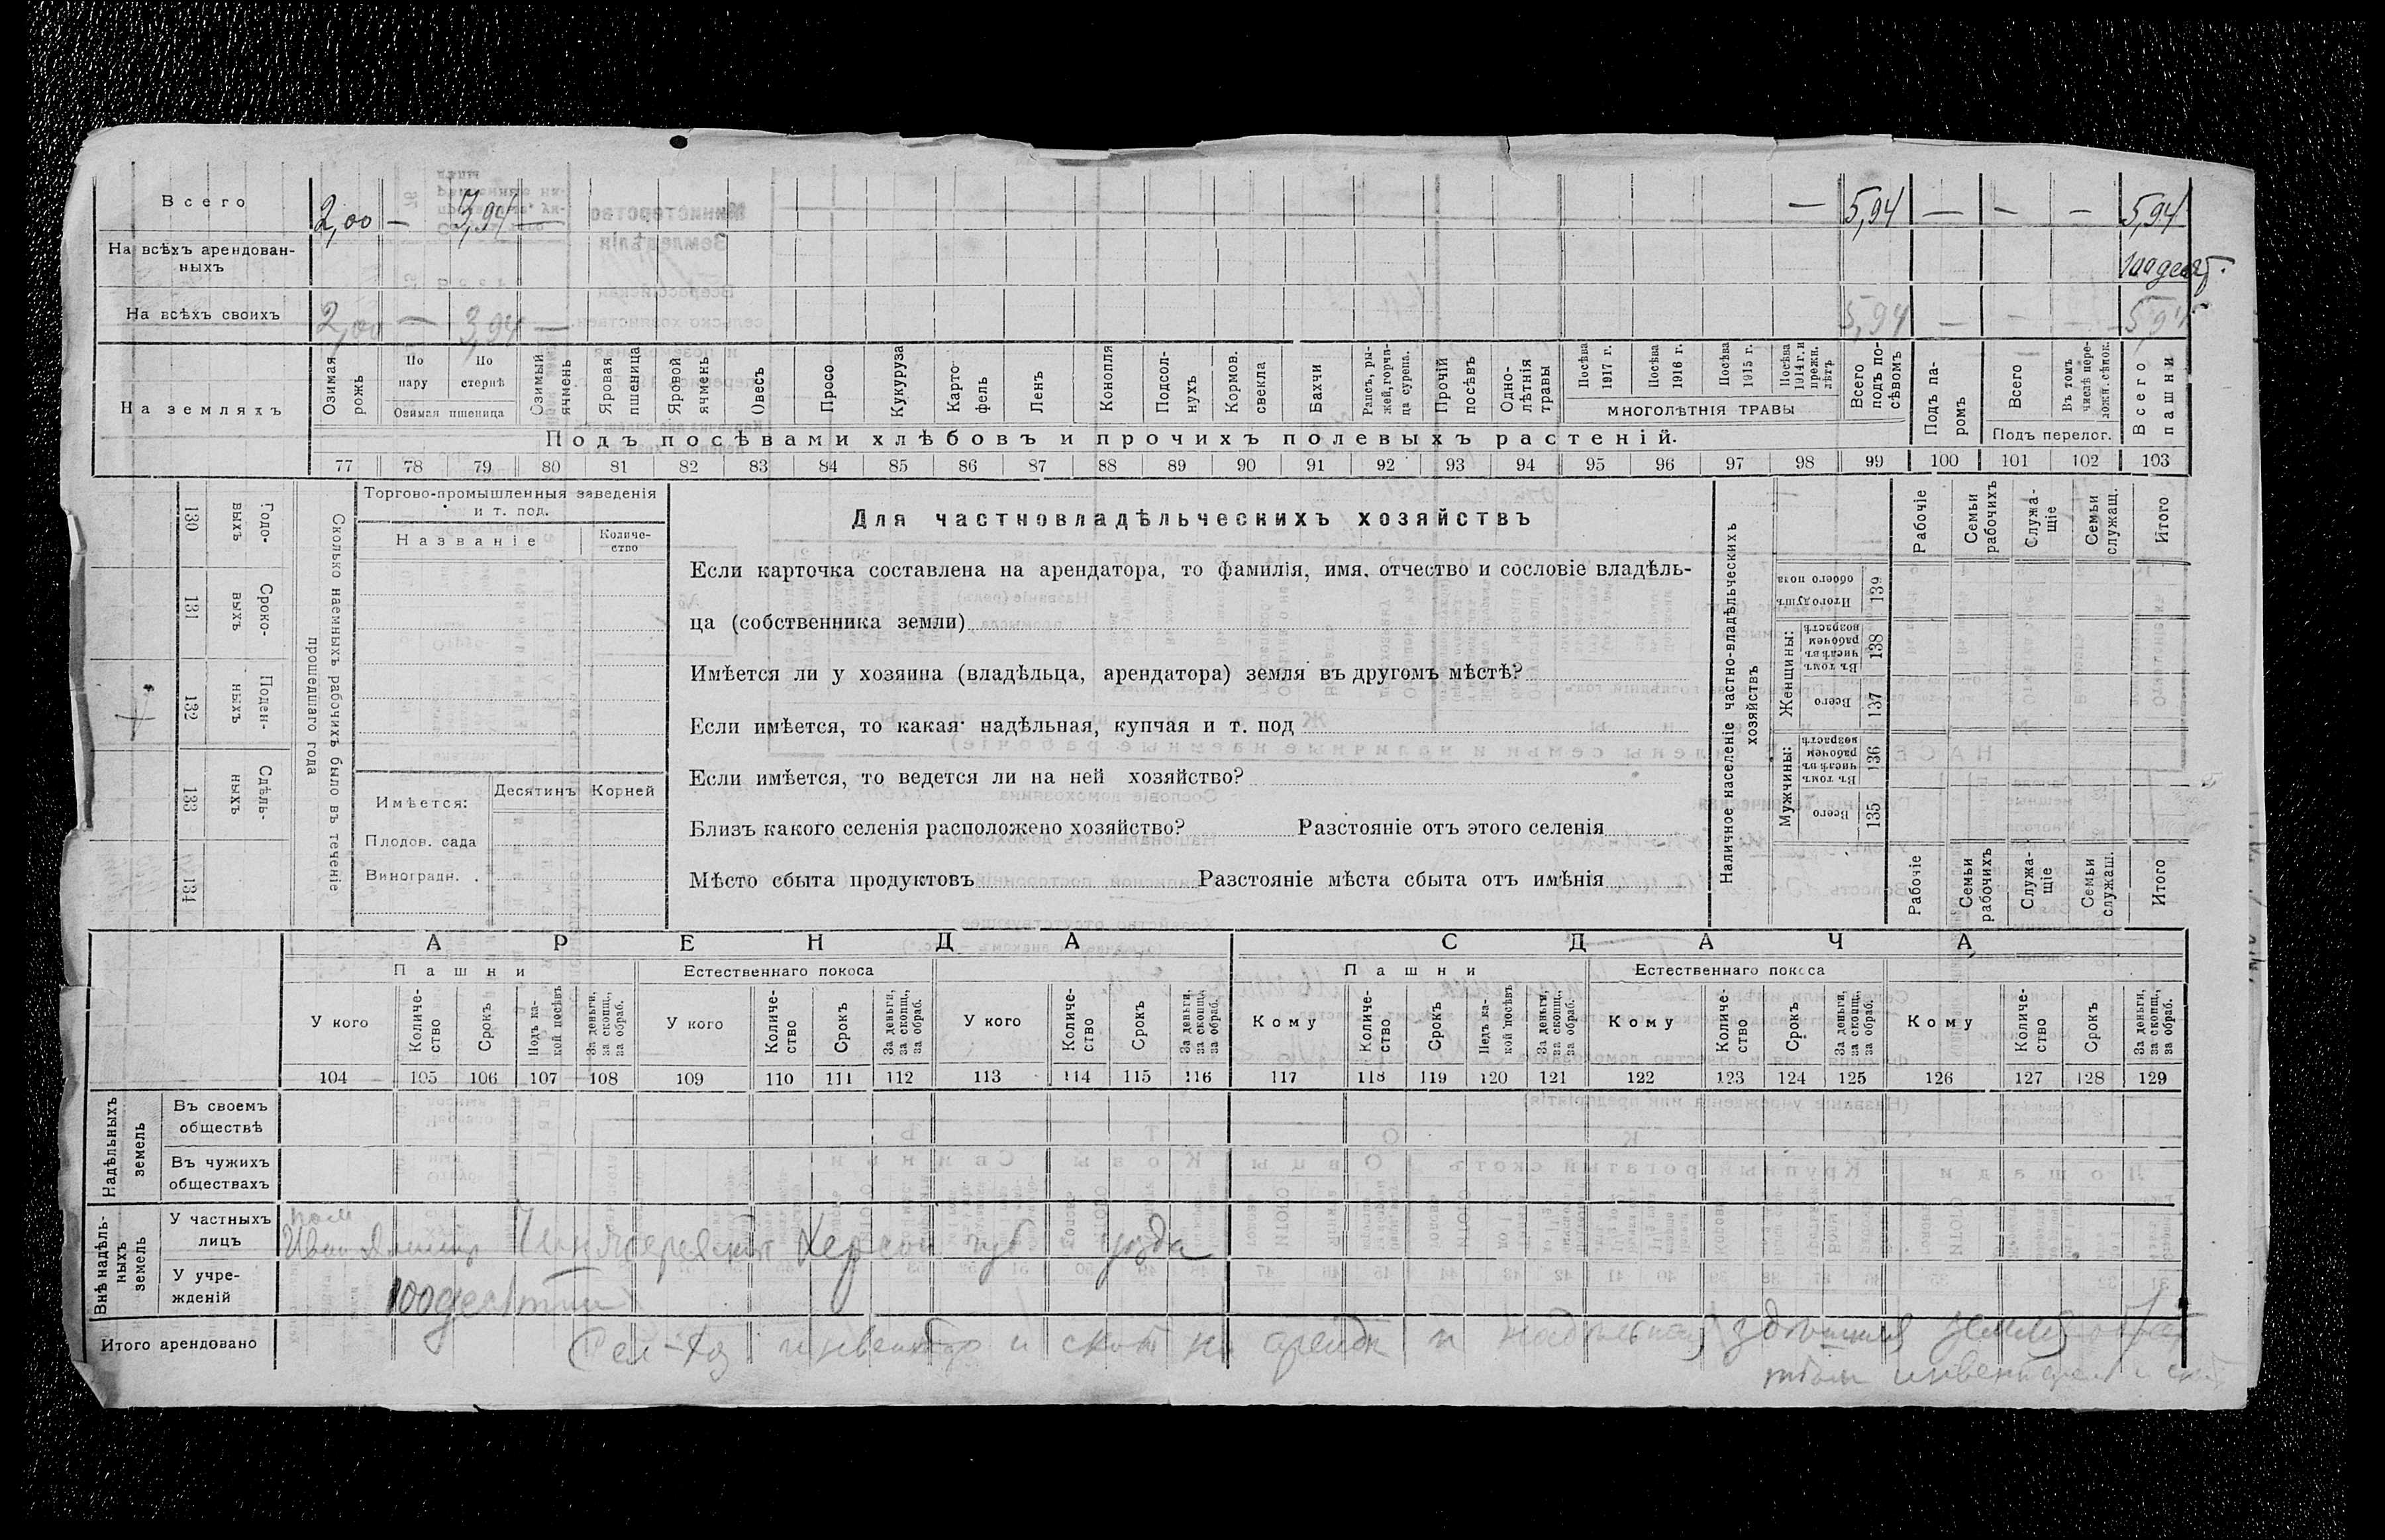 Всего 2,00 — 3,94 — — 5,94 — — — 5,94
На всѣхъ арендован-
ныхъ
На всѣхъ своихъ 2,00 — 3,94 — 5,94 — — — 5,94
На земляхъ
Озимая рожь
По пару
По стернѣ
Озимая пшеница
Озимый ячмень
Яровая пшеница
Яровой ячмень
Овесъ
Просо
Кукуруза
Карто-
фель
Ленъ
Конопля
Подсол-
нухъ
Кормов. свекла
Бахчи
Рапсъ, ры-
жей, горчи-
ца сурепа.
Прочій посѣвъ
Одно-
лѣтнія травы
Посѣва 1917 г.
Посѣва 1916 г.
Посѣва 1915 г.
Посѣва 1914 г. и прежн. лѣтъ
МНОГОЛѢТНІЯ ТРАВЫ
Всего подъ по-
сѣвомъ
Подъ па-
ромъ
Всего
Въ томъ числѣ пере-
ложн. сѣнок.
Подъ перелог.
Всего пашни
Подъ посѣвами хлѣбовъ и прочихъ полевыхъ растеній.
77 78 79 80 81 82 83 84 85 86 87 88 89 90 91 92 93 94 95 96 97 98 99 100 101 102 103
130 Годо-
выхъ
131 Сроко-
выхъ
132 Поден-
ныхъ
133 Сдѣль-
ныхъ
134
Сколько наемныхъ рабочихъ было въ теченіе
прошедшаго года
Торгово-промышленныя заведенія
и т. под.
Названіе
Количе-
ство
Имѣется:
Десятинъ Корней
Плодов. сада
Виноградн.
Для частновладѣльческихъ хозяйствъ
Если карточка составлена на арендатора, то фамилія, имя, отчество и сословіе владѣль-
ца (собственника земли)
Имѣется ли у хозяина (владѣльца, арендатора) земля въ другомъ мѣстѣ?
Если имѣется, то какая: надѣльная, купчая и т. под
Если имѣется, то ведется ли на ней хозяйство?
Близъ какого селенія расположено хозяйство? Разстояніе отъ этого селенія
Мѣсто сбыта продуктовъ Разстояніе мѣста сбыта отъ имѣнія
Наличное населеніе частно-владѣльческихъ
хозяйствъ
Рабочіе
Семьи рабочихъ
Служа-
щіе
Семьи служащ.
Итого
Итого душъ обоего пола 139
Женщины:
Въ томъ числѣ въ рабочемъ возрастѣ 138
Всего 137
Мужчины:
Въ томъ числѣ въ рабочемъ возрастѣ 136
Всего 135
Рабочіе
Семьи рабочихъ
Служа-
щіе
Семьи служащ.
Итого
АРЕНДА СДАЧА
Пашни Естественнаго покоса Пашни Естественнаго покоса
У кого
Количе-
ство
Срокъ
Подъ ка-
кой посѣвъ
За деньги, за скопщ., за обраб.
У кого
Количе-
ство
Срокъ
За деньги, за скопщ., за обраб.
У кого
Количе-
ство
Срокъ
За деньги, за скопщ., за обраб.
Кому
Количе-
ство
Срокъ
Подъ ка-
кой посѣвъ
За деньги, за скопщ., за обраб.
Кому
Количе-
ство
Срокъ
За деньги, за скопщ., за обраб.
Кому
Количе-
ство
Срокъ
За деньги, за скопщ., за обраб.
104 105 106 107 108 109 110 111 112 113 114 115 116 117 118 119 120 121 122 123 124 125 126 127 128 129
Надѣльныхъ
земель
Въ своемъ
обществѣ
Въ чужихъ
обществахъ
Внѣ надѣль-
ныхъ
земель
У частныхъ
лицъ
Херсон губ уѣзда
У учре-
жденій
100
Итого арендовано
и скот на
земля